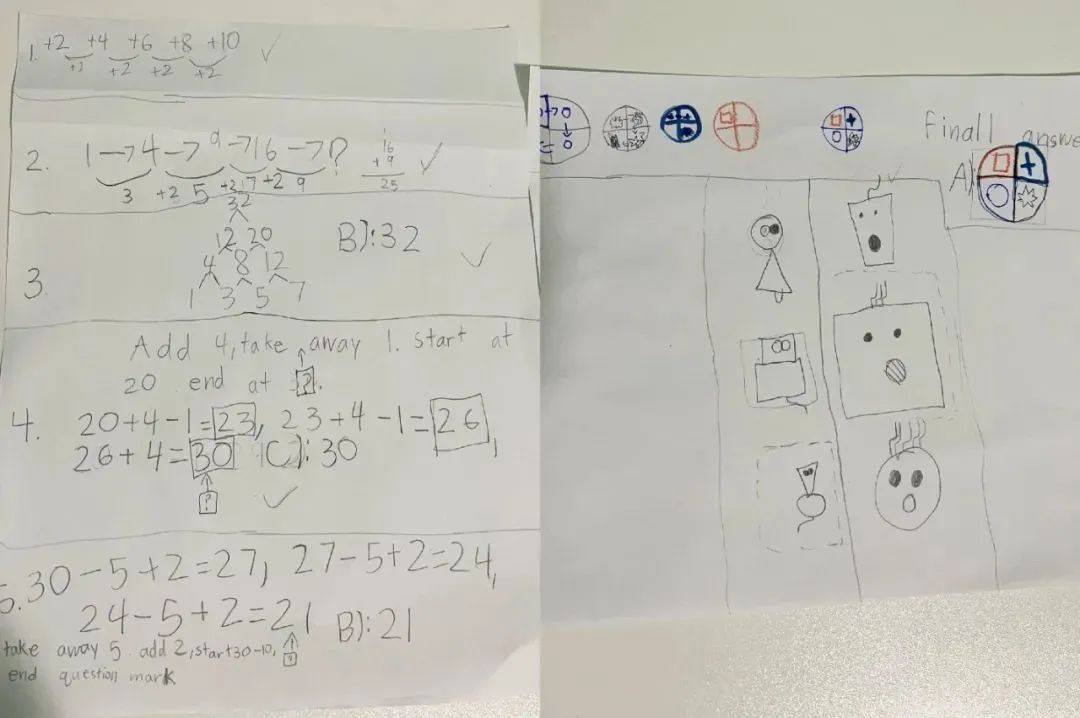 1. +2 +4 +6 +8 +10 ✓
+2 +2 +2 +2
2. 1 → 4 → 9 → 16 → ? 16 ✓
+ 9
3 +2 5 +2 7 +2 9 25
32
12 20 B): 32 ✓
4 8 12
3
1 3 5 7
Add 4, take away 1. start at
20 end at ?.
4. 20+4-1=23, 23+4-1=26,
26+4=30 C): 30
? ✓
5. 30-5+2=27, 27-5+2=24,
24-5+2=21 B): 21
take away 5 add 2, start30-10, ?
end question mark
Finall answe
A)